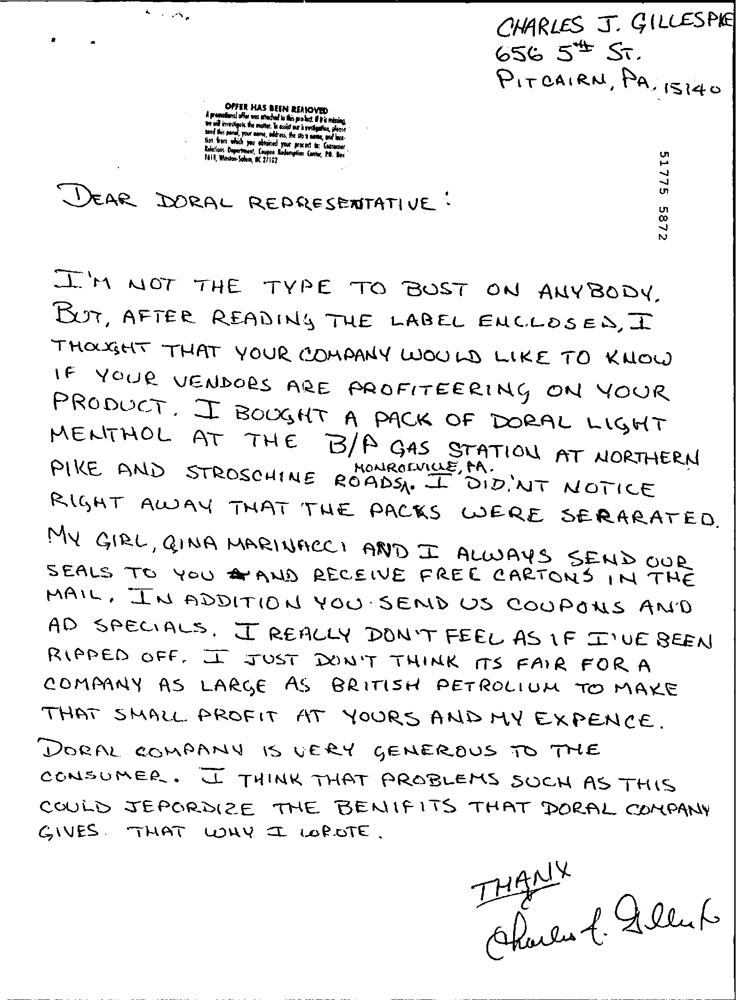 CHARLES J. GILLESPIE
656 5th ST.
PITCAIRN, PA. 15140
OFFER HAS BEEN REMOVED
A promotional offer was attached to this product. If it is missing,
we will investigate the matter. To assist our investigation, please
send this panel, your name, address, the store name, and loca-
tion from which you obtained your product to: Consumer
Relations Department, Coupon Redemption Center, P.O. Box
1418, Winston-Salem, NC 27102
51775 5872
DEAR DORAL REPRESENTATIVE:
I'M NOT THE TYPE TO BUST ON ANYBODY.
BUT, AFTER READING THE LABEL ENCLOSED, I
THOUGHT THAT YOUR COMPANY WOULD LIKE TO KNOW
IF YOUR VENDORS ARE PROFITEERING ON YOUR
PRODUCT. I BOUGHT A PACK OF DORAL LIGHT
MENTHOL AT THE B/P GAS STATION AT NORTHERN
PIKE AND STROSCHINE ROADS, MONROEVILLE, PA. I DID'NT NOTICE
RIGHT AWAY THAT THE PACKS WERE SERARATED.
MY GIRL, GINA MARINACCI AND I ALWAYS SEND OUR
SEALS TO YOU AND RECEIVE FREE CARTONS IN THE
MAIL. IN ADDITION YOU SEND US COUPONS AND
AD SPECIALS. I REALLY DON'T FEEL AS IF I'VE BEEN
RIPPED OFF. I JUST DON'T THINK ITS FAIR FOR A
COMPANY AS LARGE AS BRITISH PETROLIUM TO MAKE
THAT SMALL PROFIT AT YOURS AND MY EXPENCE.
DORAL COMPANY IS VERY GENEROUS TO THE
CONSUMER. I THINK THAT PROBLEMS SUCH AS THIS
COULD JEPORDIZE THE BENIFITS THAT DORAL COMPANY
GIVES. THAT WHY I WROTE.
THANX
Charles J. Gillespie